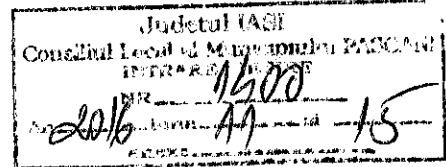 Judetul IASI
Consiliul Local al Municipiului PASCANI
INTRARE
NR 1500
2016 11 15